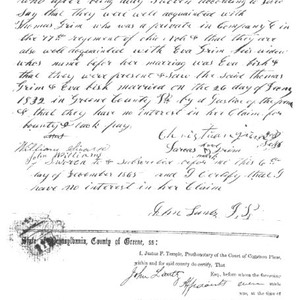 who after being duly sworn according to law
say that they were well acquainted with
Thomas Grim who was a private in Company E in
the 77th regiment of
that they are
also well acquainted with Eva Grim his widow
who name before her marriage was Eva Fish &
that they were present & saw the said Thomas
Grim & Eva Fish married on the 26 day of
1832 in Greene County Pa by a Justice of the peace
& that they have no interest in her Claim for
bounty & back pay.
Christian
William
her
John Williams
mark
Grim
Sworn & Subscribed before me this 6th
day of November 1865 and I Certify that I
have no interest in her Claim
John Lantz J. P.
State of Pennsylvania, County of Greene, ss:
I, Justus F. Temple, Prothonotary of the Court of Common Pleas,
within and for said county do certify, That
John Lantz Esq., before whom the
were made
was, at the time of